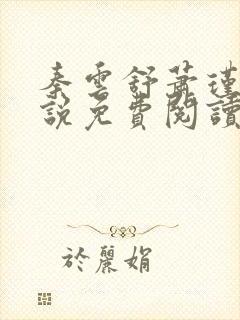 秦雲舒蕭瑾
說免費閱讀
於麗娟